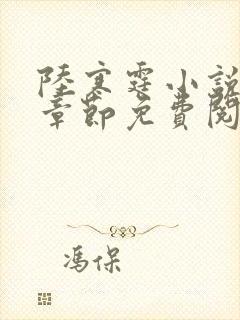 陸寒霆小說
章節免費閱
馮保